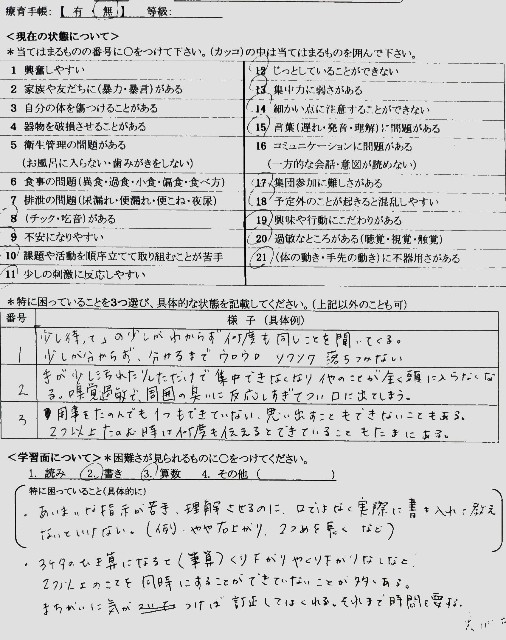 療育手帳：【 有 ・ 無 】 等級：
＜現在の状態について＞
＊当てはまるものの番号に○をつけて下さい。（カッコ）の中は当てはまるものを囲んで下さい。
1 興奮しやすい
2 家族や友だちに（暴力・暴言）がある
3 自分の体を傷つけることがある
4 器物を破損させることがある
5 衛生管理の問題がある
（お風呂に入らない・歯みがきをしない）
6 食事の問題（異食・過食・小食・偏食・食べ方）
7 排泄の問題（尿漏れ・便漏れ・便こね・夜尿）
8 （チック・吃音）がある
9 不安になりやすい
10 課題や活動を順序立てて取り組むことが苦手
11 少しの刺激に反応しやすい
12 じっとしていることができない
13 集中力に弱さがある
14 細かい点に注意することができない
15 言葉（遅れ・発音・理解）に問題がある
16 コミュニケーションに問題がある
（一方的な会話・意図が読めない）
17 集団参加に難しさがある
18 予定外のことが起きると混乱しやすい
19 興味や行動にこだわりがある
20 過敏なところがある（聴覚・視覚・触覚）
21 （体の動き・手先の動き）に不器用さがある
＊特に困っていることを3つ選び、具体的な状態を記載してください。（上記以外のことも可）
番号 様 子 （具体例）
1 少し待って」の少しがわからず何度も同じことを聞いてくる。
少しが分からず、分けるまでウロウロ ソワソワ 落ちつかない
2 手が少しよごれた（ただけで集中できなくなり他のことが全く頭に入らなくな
る。嗅覚過敏で、周囲の臭いに反応しすぎてつい口に出てしまう。
3 用事をたのんでも1つもできていない、思い出すこともできないこともある。
2つ以上たのむ時は何度も伝えるとできていることもたまにある。
＜学習面について＞＊困難さが見られるものに○をつけてください。
1. 読み 2. 書き 3. 算数 4. その他 （ ）
特に困っていること（具体的に）
・あいまいな指示が苦手、理解させるのに、口ではなく実際に書き入れて教え
ないといけない。（例）・やや右上がり、2つめを長く など）
・3ケタのひき算になると（筆算）くり下がりやくり下がりなしなど、
2つ以上のことを同時にすることができていないことが多くある。
まちがいに気がつけば訂正してはくれる。それまで時間を要する。